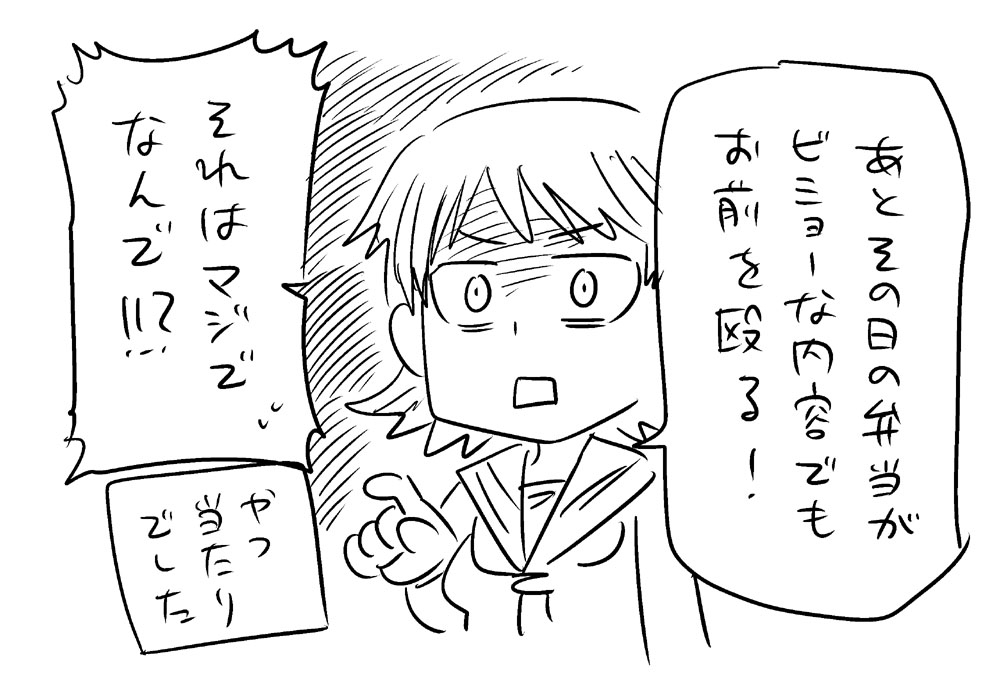 あとその日の弁当が
ビミョーな内容でも
お前を殴る！
それはマジで
なんで!!?
やつ
当たり
でした